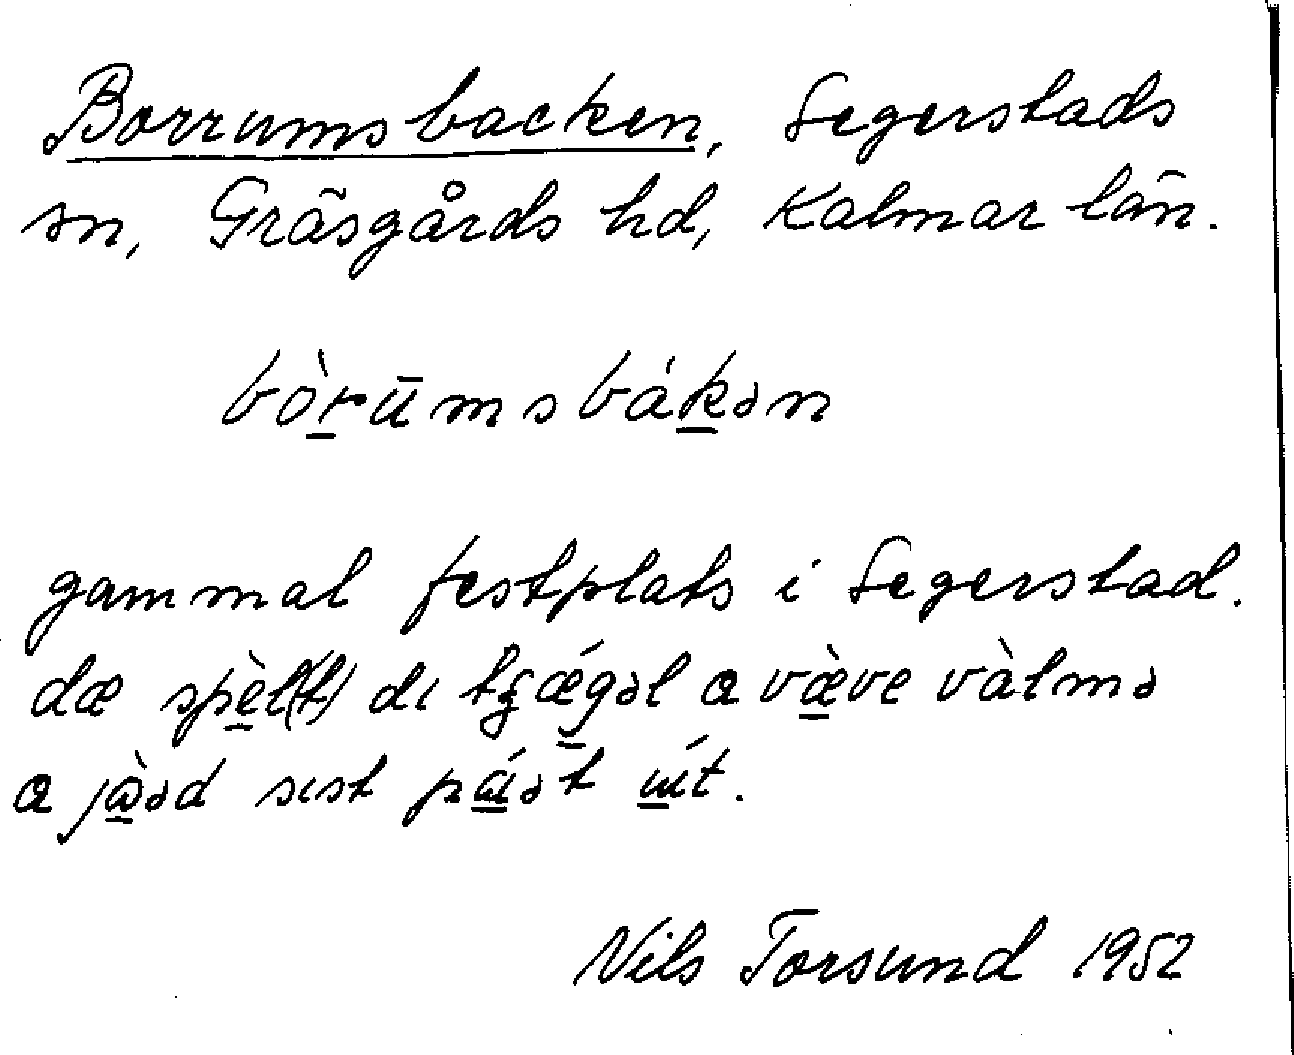 Borrumsbacken, Segerstads
sn, Gräsgårds hd, Kalmar län.
bòr̠ūmsbák̠ən
gammal festplats i Segerstad.
dæ spè̠l(t) dı tʒǽgəl a væ̠̀ve vàlmə
a jæ̠̀əd sıst pá̠ət út.
Nils Torsund 1952